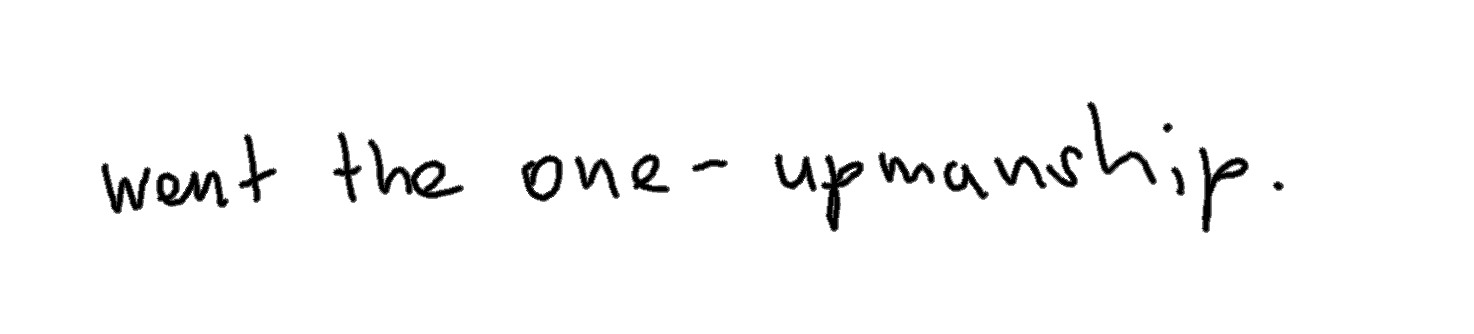 went the one-upmanship.